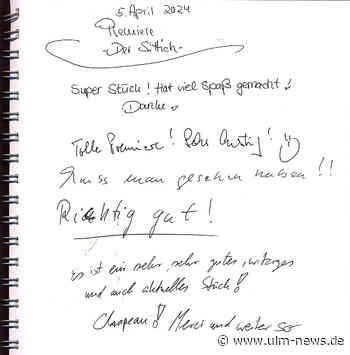 5. April 2024
Premiere
-Der Sittich-
Super Stück! Hat viel Spaß gemacht!
Danke
Tolle Premiere! Sehr lustig!
Muss man gesehen haben!!
Richtig gut!
Es ist ein sehr, sehr gutes, witziges
und auch aktuelles Stück!
Chapeau! Merci und weiter so
© www.ulm-news.de